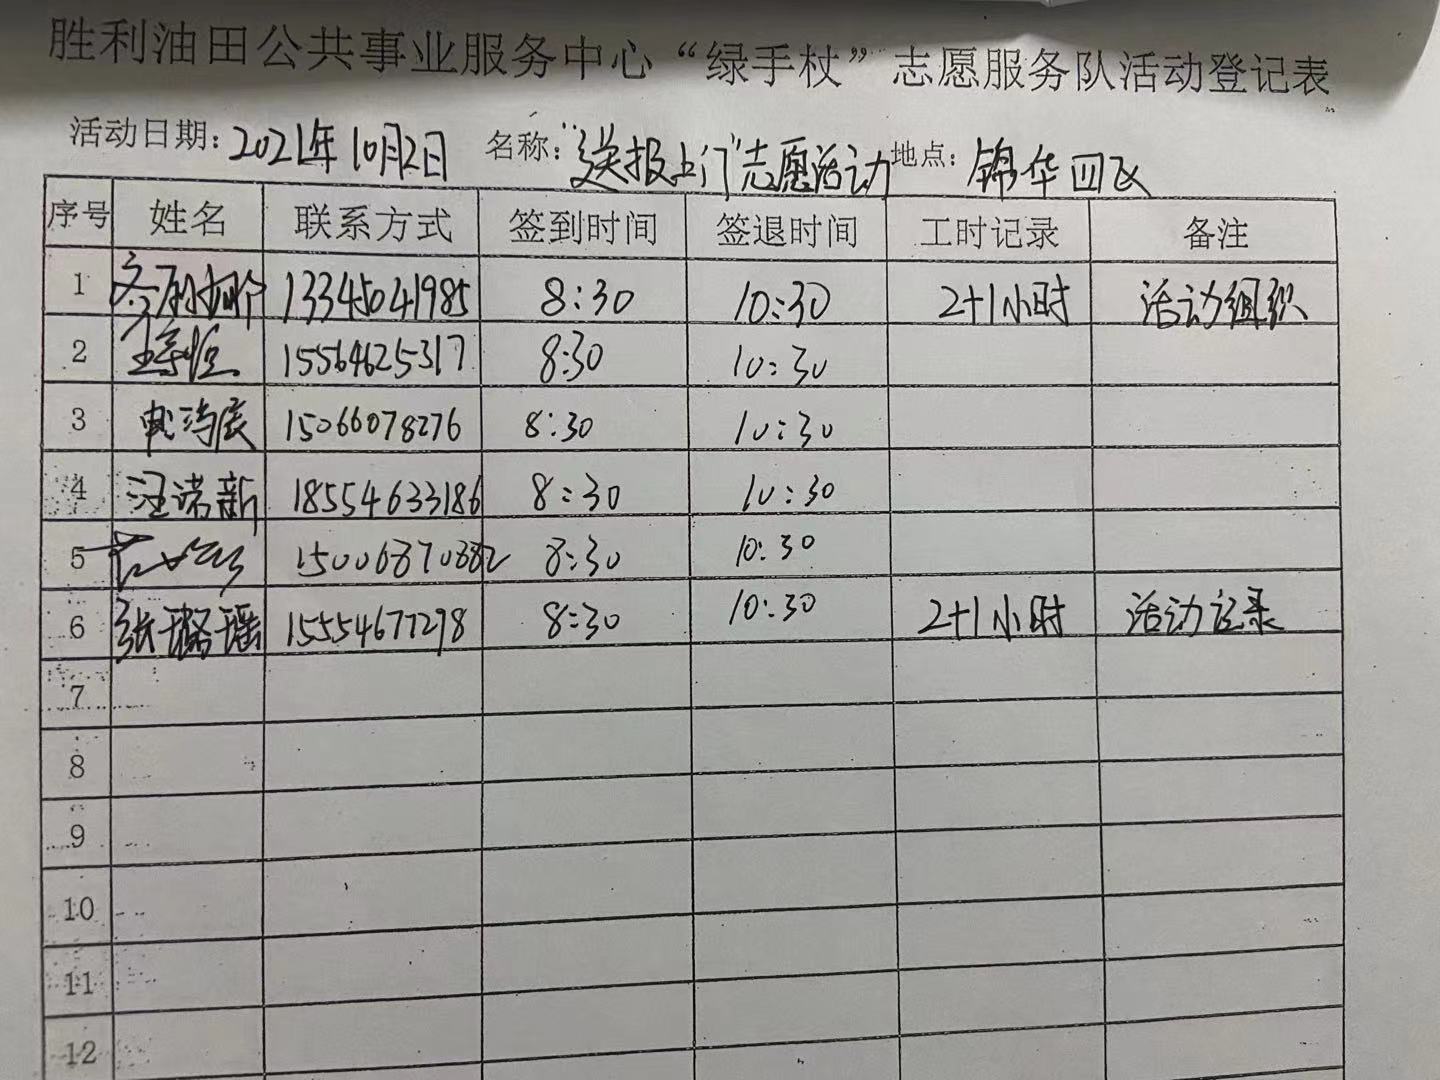 胜利油田公共事业服务中心“绿手杖”志愿服务队活动登记表
活动日期：2021年10月2日 名称：“送报上门”志愿活动 地点：锦华四区
序号 姓名 联系方式 签到时间 签退时间 工时记录 备注
1 13345041985 8:30 10:30 2+1小时 活动组织
2 15564625317 8:30 10:30
3 15066078276 8:30 10:30
4 汪诺新 18554633186 8:30 10:30
5 15006870882 8:30 10:30
6 张璐瑶 15554677298 8:30 10:30 2+1小时 活动记录
7
8
9
10
11
12